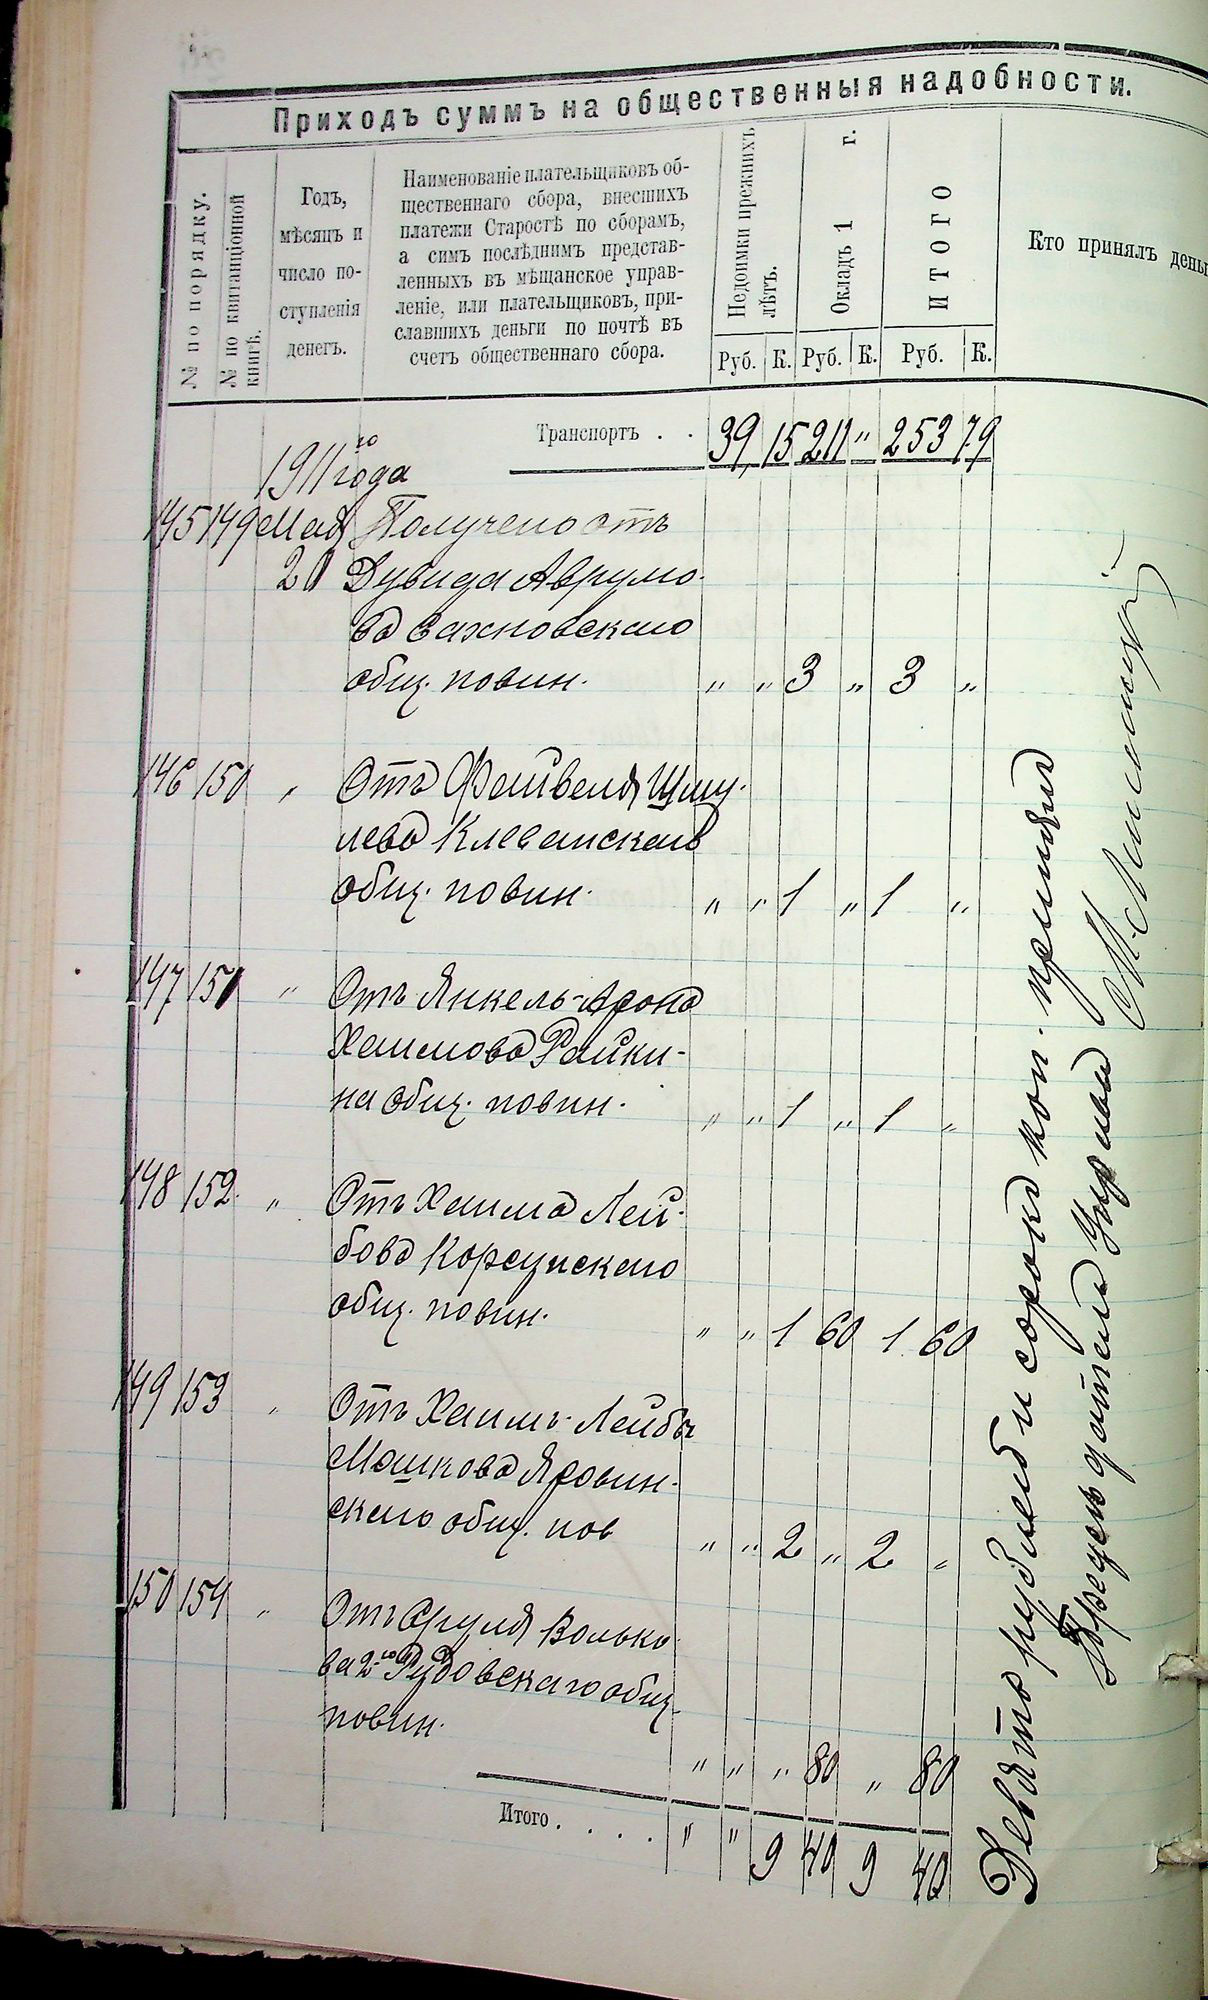 Приходъ суммъ на общественныя надобности.
№ по порядку.
№ по квитанціонной
книгѣ.
Годъ,
мѣсяцъ и
число по-
ступленія
денегъ.
Наименованіе плательщиковъ об-
щественнаго сбора, внесшихъ
платежи Старостѣ по сборамъ,
а симъ послѣднимъ представ-
ленныхъ въ мѣщанское управ-
леніе, или плательщиковъ, при-
славшихъ деньги по почтѣ въ
счетъ общественнаго сбора.
Недоимки прежнихъ
лѣтъ.
Окладъ 1 г.
ИТОГО
Кто принялъ день
Руб. К. Руб. К. Руб. К.
Транспортъ . . 39 15 211 " 253 79
1911го года
145 149 Мая Получено отъ
20 Дувида Аврумо-
ва Сахновскаго
общ. повин. " " 3 " 3 "
146 150 " Отъ Файвеля Шму-
лева Клеванскаго
общ. повин. " " 1 " 1 "
147 151 " Отъ Янкель-Арона
Хаимова Райки-
на общ. повин. " " 1 " 1 "
148 152 " Отъ Хаима Лей-
бова Корсунскаго
общ. повин. " " 1 60 1 60
149 153 " Отъ Хаимъ-Лейбы
Мошкова Яровин-
скаго общ. пов " " 2 " 2 "
150 154 " Отъ Сруля Волько-
ва 2го Рудовскаго общ.
повин. " " " 80 " 80
Итого . . . . " " 9 40 9 40
Девять рублей и сорокъ коп. принялъ
Предсѣдатель Управы